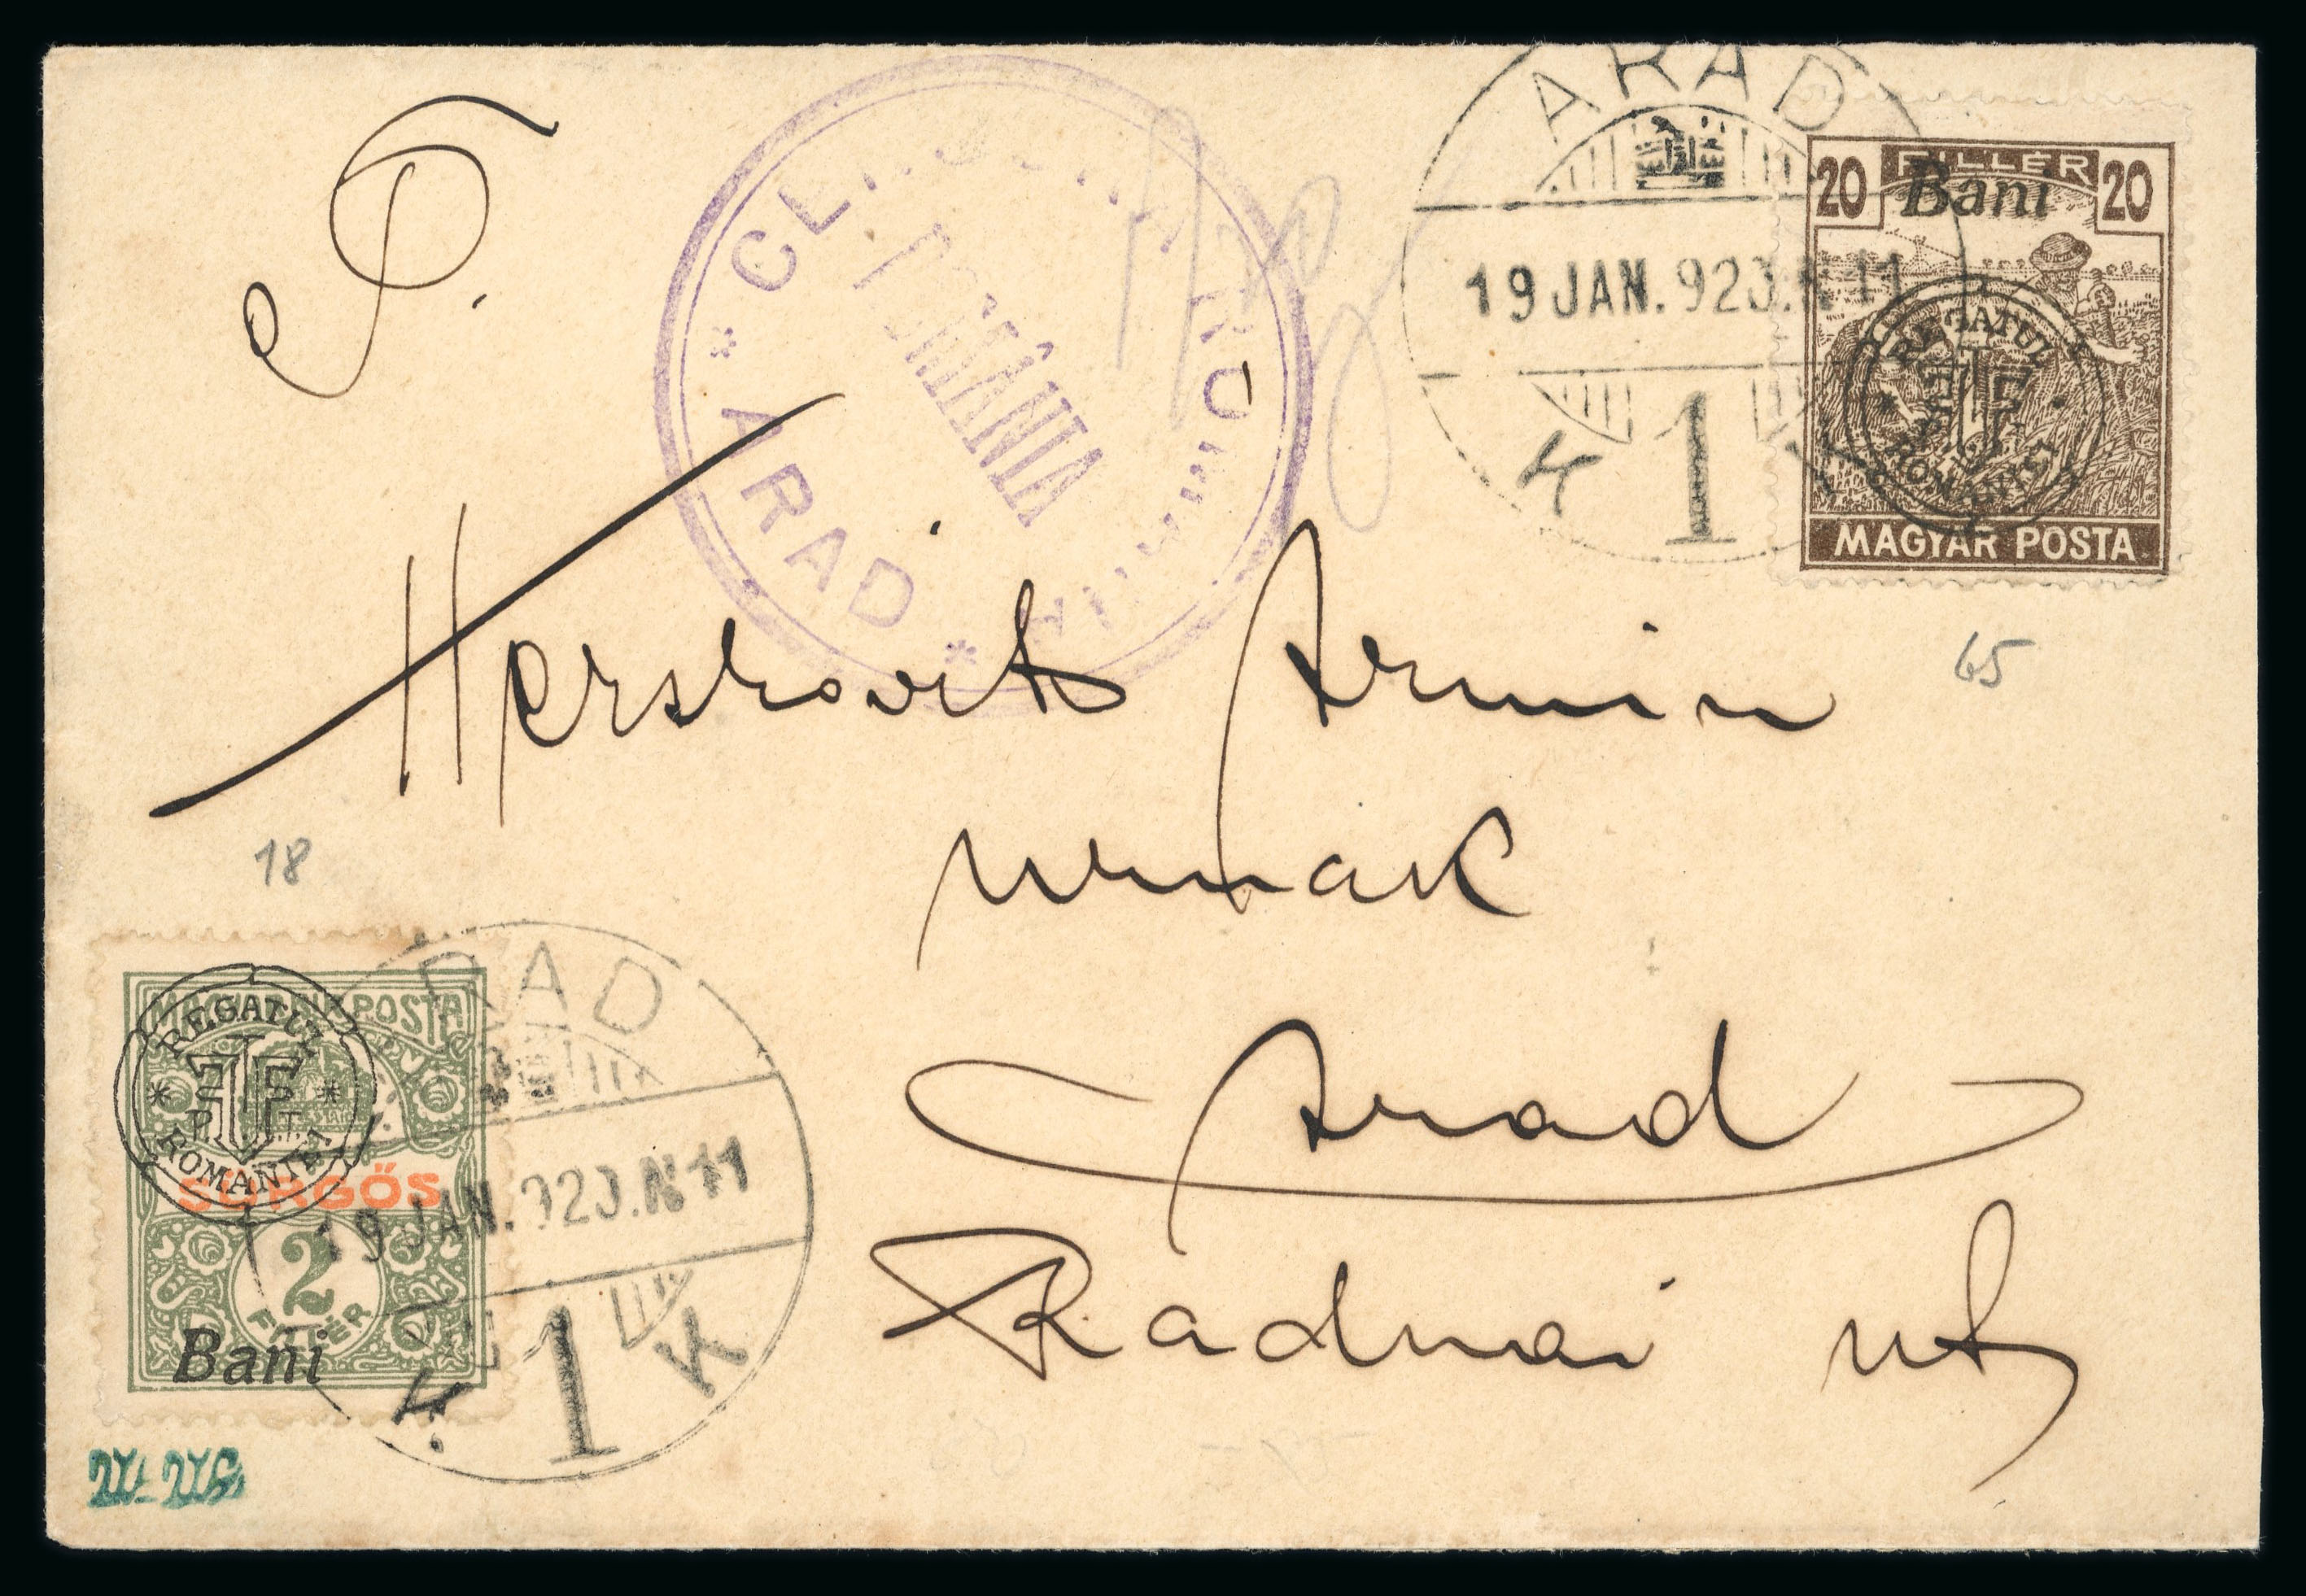 T.
CENZURA ROMÂNIA
ROMÂNIA
* ARAD *
ARAD
19 JAN. 920.N 11
K 1
20 FILLÉR 20
Bani
REGATUL
ROMÂNIEI
MAGYAR POSTA
65
Herskovits Armin
urnak
Arad
Radnai ut
18
ARAD
19 JAN. 920.N 11
K 1 K
MAGYAR KIR. POSTA
REGATUL
P.T.T.
ROMANIEI
SÜRGŐS
2
FILLÉR
Bani